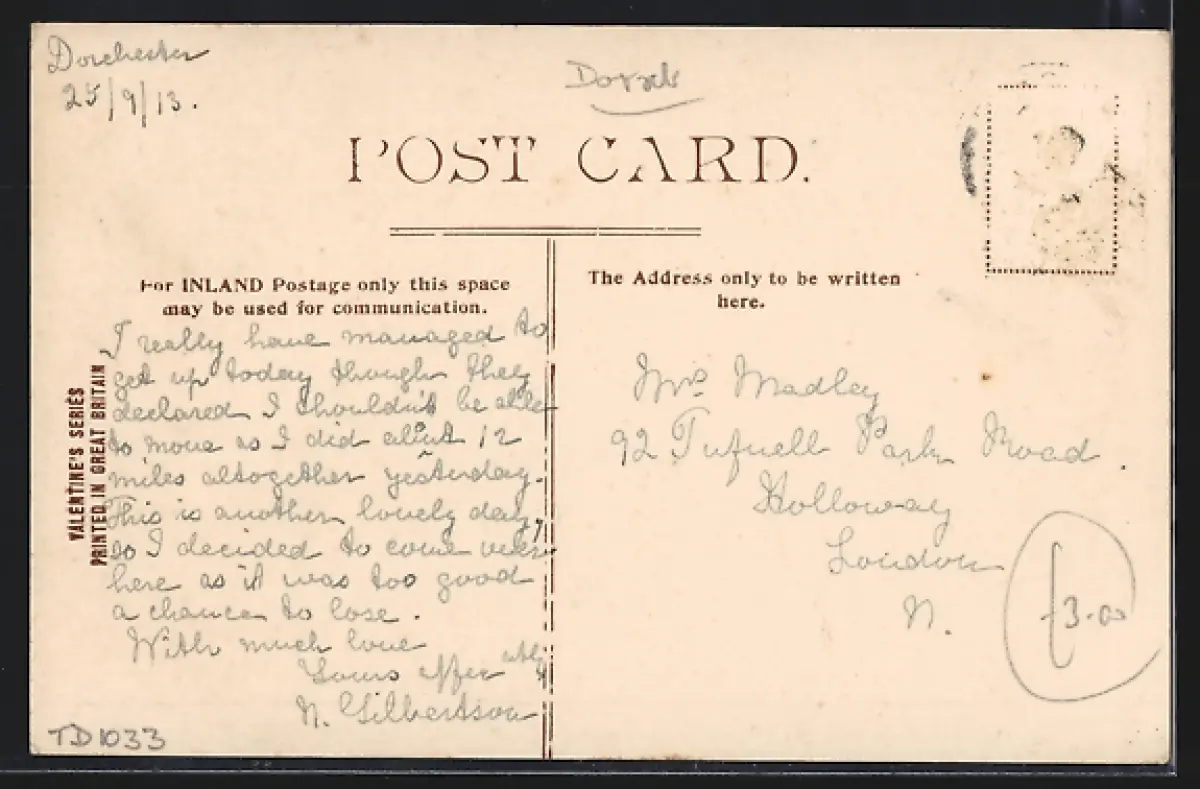 Dorchester
25/9/13.
Dorset
POST CARD.
For INLAND Postage only this space
may be used for communication.
The Address only to be written
here.
VALENTINE'S SERIES
PRINTED IN GREAT BRITAIN
I really have managed to
get up today though they
declared I shouldn't be able
to move as I did about 12
miles altogether yesterday.
This is another lovely day,
so I decided to come over
here as it was too good
a chance to lose.
With much love
Yours affec ately
N. Gilbertson
Mrs Madley
92 Tufnell Park Road.
Holloway
London
N.
£3.00
TD1033